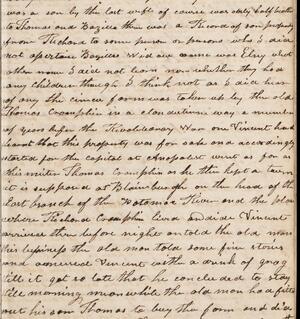 was a son by the last wife of course was only half brother
to Thomas and Bazille there was a Thcont of son property
from Richard to some person or persons who I did
not ascertain Bazilles Widows name was Elsy what
other name I did not learn nor whether they had
any children though I think not as I did hear
of any the farm was taken up by the old
Thomas Cramphin in a clandestine way a number
of years before the Revolutionary War one Vincent had
learnt that this property was for sale and accordingly
started for the capital at Anapolis went as far as
this mister Thomas Cramphin as he then kept a tavern
it is supposed at Bladensburgh on the head of the
East branch of the Potomac River and the place
where Richard Cramphin lived and died Vincent
arrived there before night on told the old man
his business the old man told some fine stories
and amused Vincent with a drink of grog
till it got so late that he concluded to stay
till morning meanwhile the old man had fitted
out his son Thomas to buy the farm and did